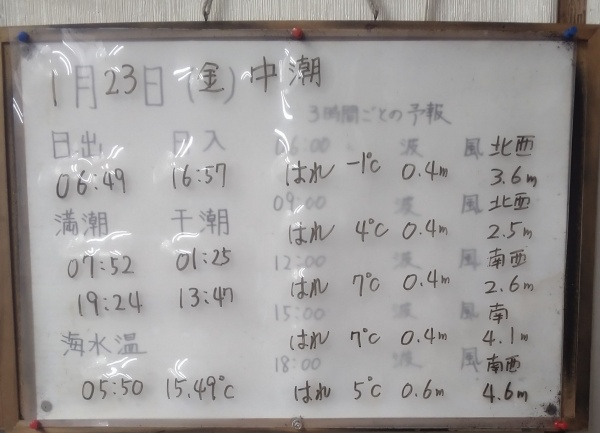 1月23日(金)中潮
3時間ごとの予報
日出 日入
06:49 16:57
満潮 干潮
07:52 01:25
19:24 13:47
海水温
05:50 15.49℃
06:00 波 風 北西
はれ -1℃ 0.4m 3.6m
09:00 波 風 北西
はれ 4℃ 0.4m 2.5m
12:00 波 風 南西
はれ 7℃ 0.4m 2.6m
15:00 波 風 南
はれ 7℃ 0.4m 4.1m
18:00 波 風 南西
はれ 5℃ 0.6m 4.6m